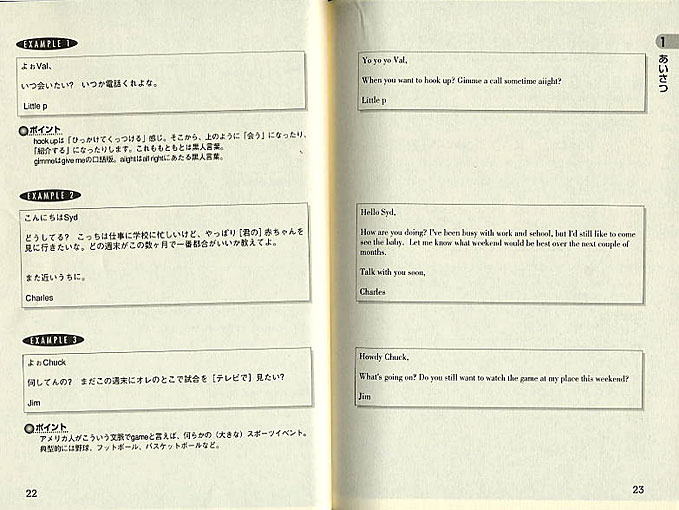 EXAMPLE 1
よぉVal、
いつ会いたい? いつか電話くれよな。
Little p
ポイント
hook upは「ひっかけてくっつける」感じ。そこから、上のように「会う」になったり、
「紹介する」になったりします。これももともとは黒人言葉。
gimmeはgive meの口語版。aightはall rightにあたる黒人言葉。
EXAMPLE 2
こんにちはSyd
どうしてる? こっちは仕事に学校に忙しいけど、やっぱり[君の]赤ちゃんを
見に行きたいな。どの週末がこの数ヶ月で一番都合がいいか教えてよ。
また近いうちに。
Charles
EXAMPLE 3
よぉChuck
何してんの? まだこの週末にオレのとこで試合を[テレビで]見たい?
Jim
ポイント
アメリカ人がこういう文脈でgameと言えば、何らかの(大きな)スポーツイベント。
典型的には野球、フットボール、バスケットボールなど。
22
1
あいさつ
Yo yo yo Val,
When you want to hook up? Gimme a call sometime aiight?
Little p
Hello Syd,
How are you doing? I've been busy with work and school, but I'd still like to come
see the baby. Let me know what weekend would be best over the next couple of
months.
Talk with you soon,
Charles
Howdy Chuck,
What's going on? Do you still want to watch the game at my place this weekend?
Jim
23